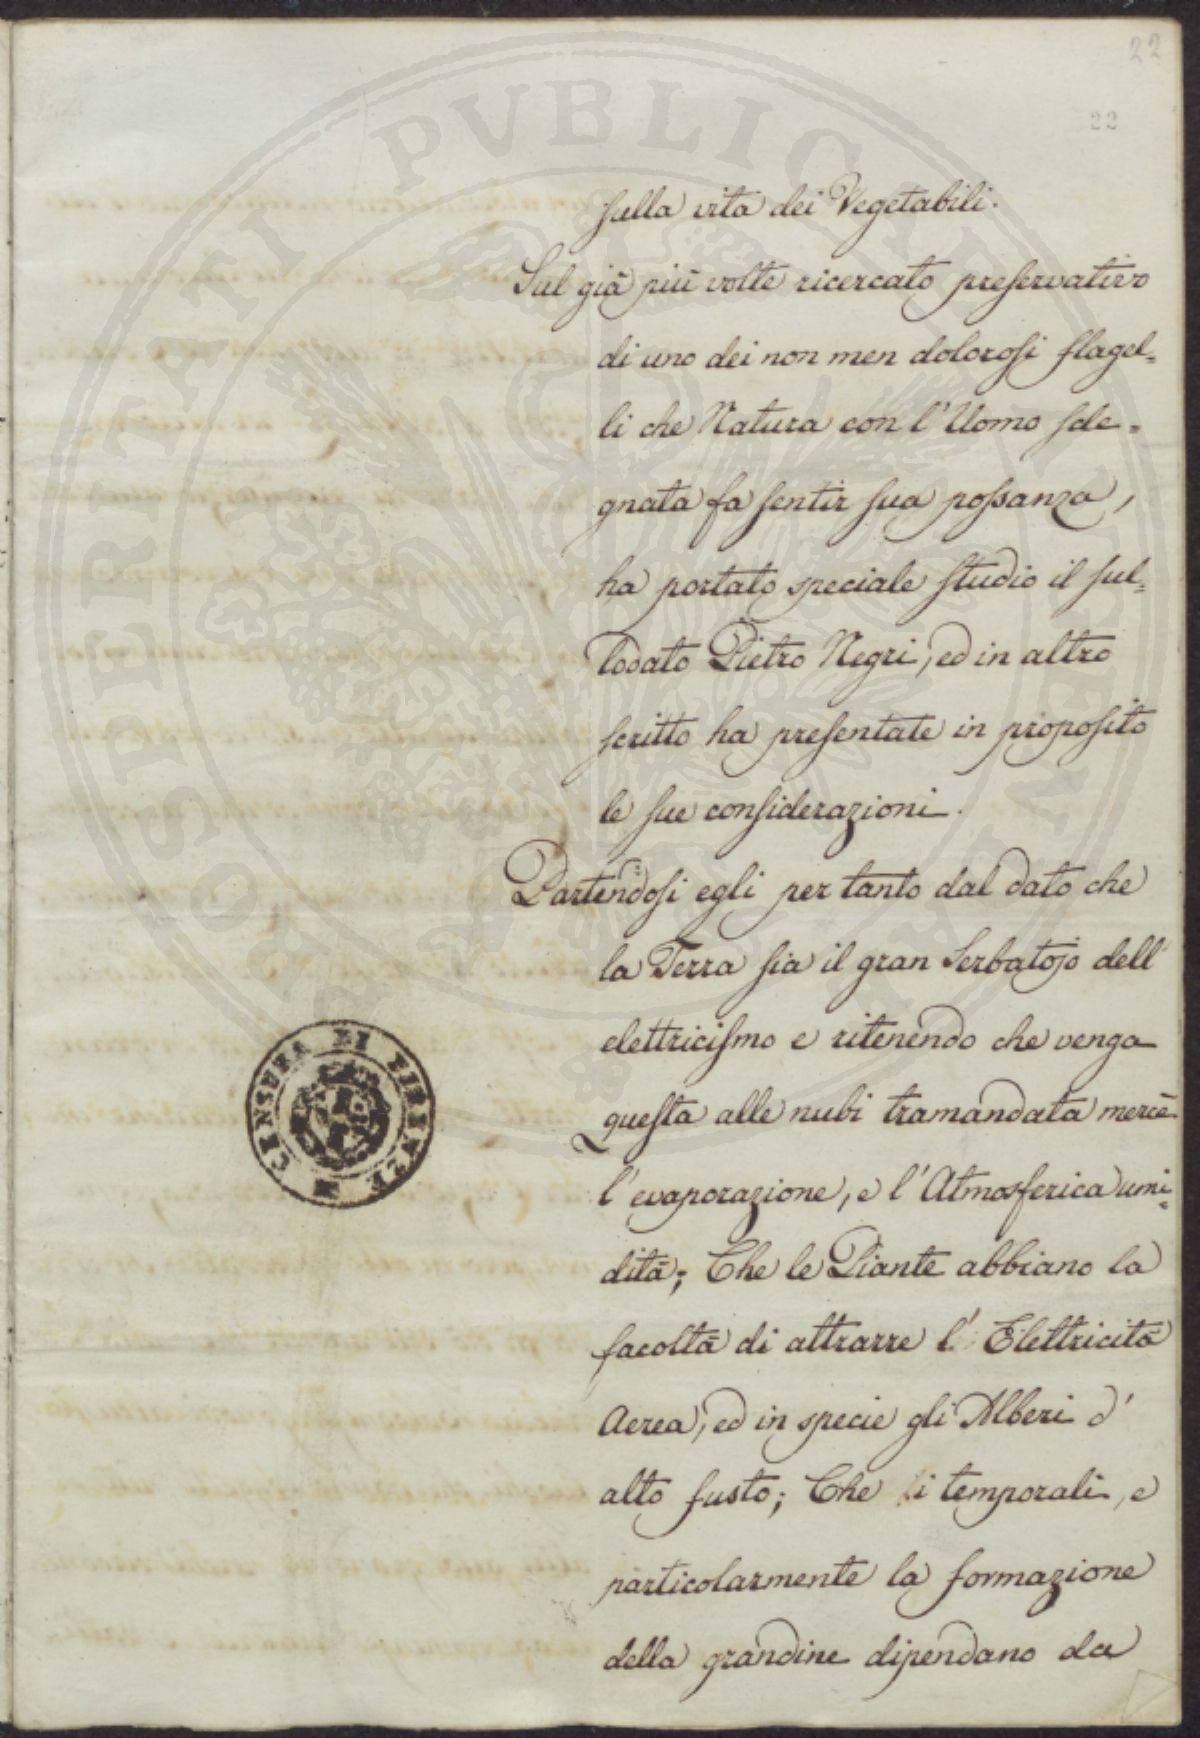 22
22
sulla vita dei Vegetabili.
Sul già più volte ricercato preservativo
di uno dei non men dolorosi flagel=
li che Natura con l'Uomo sde=
gnata fa sentir sua possanza,
ha portato speciale studio il sul=
lodato Pietro Negri, ed in altro
scritto ha presentate in proposito
le sue considerazioni.
Partendosi egli per tanto dal dato che
la Terra sia il gran Serbatojo dell'
elettricismo e ritenendo che venga
questa alle nubi tramandata mercè
l'evaporazione, e l'Atmosferica umi=
dità; Che le Piante abbiano la
facoltà di attrarre l'Elettricità
Aerea, ed in specie gli Alberi d'
alto fusto; Che i temporali, e
particolarmente la formazione
della grandine dipendano da
CENSURA DI FIRENZE
PROSPERITATI PVBLICAE